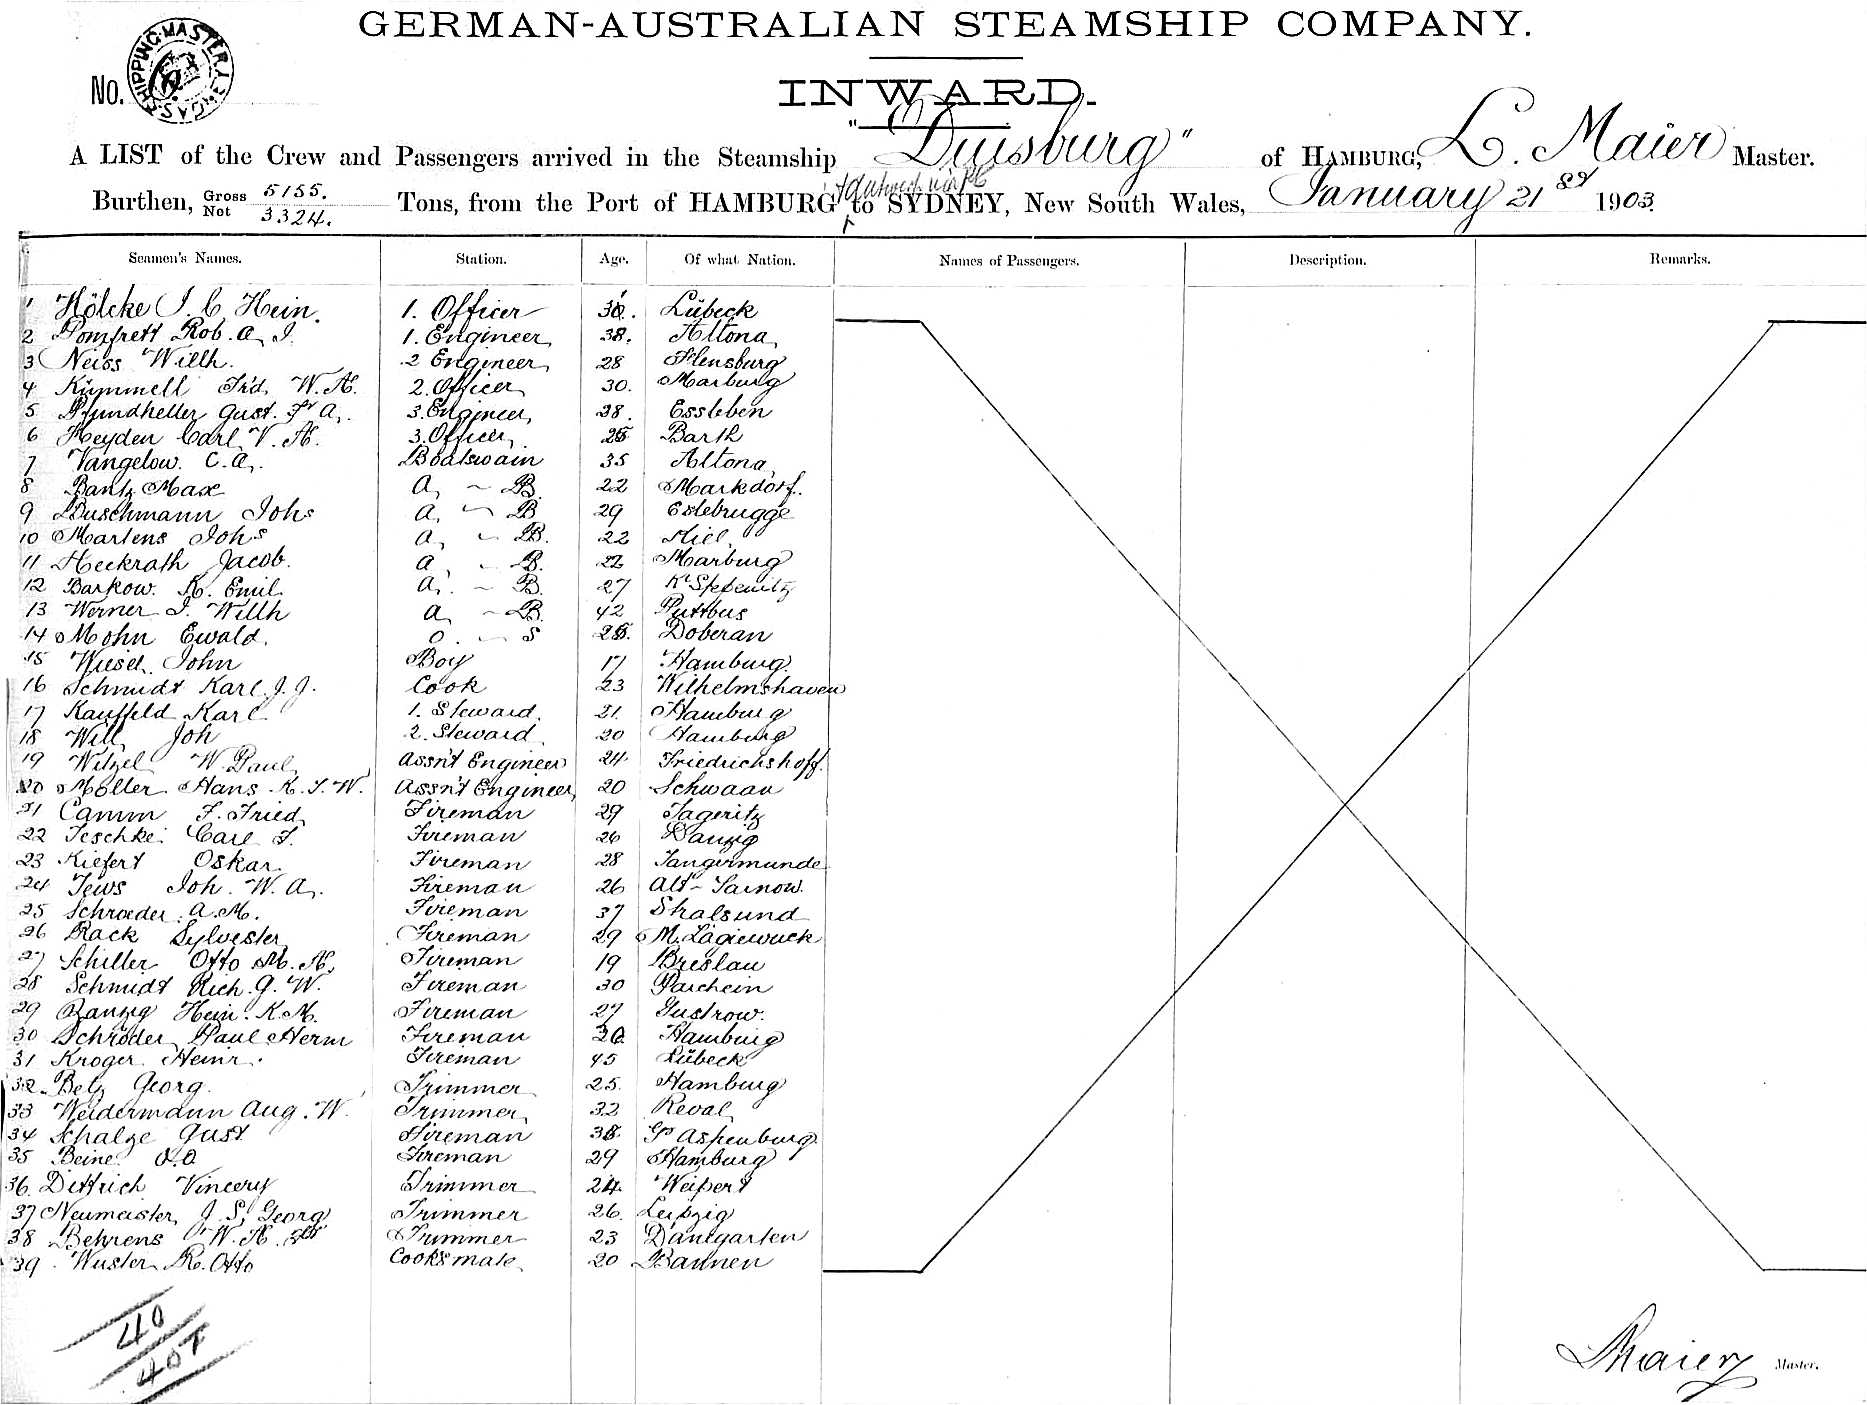 GERMAN-AUSTRALIAN STEAMSHIP COMPANY.
No.
SHIPPING MASTER
INWARD.
A LIST of the Crew and Passengers arrived in the Steamship "Duisburg" of HAMBURG, L. Maier Master.
Burthen, Gross 5155. Net 3324. Tons, from the Port of HAMBURG to SYDNEY, New South Wales, January 21st 1903.
Seamen's Names. Station. Age. Of what Nation. Names of Passengers. Description. Remarks.
1 Hölcke J. C. Hein. 1. Officer Lübeck
2 Pomfrett Rob. A. J. 1. Engineer 38. Altona
3 Neiss Willh. 2 Engineer 28 Flensburg
4 Kümmell Frd. W. H. 2. Officer 30. Marburg
5 Pfundheller Gust. Fr A. 3. Engineer 28. Essleben
6 Heyden Carl V. H. 3. Officer 25 Barth
7 Vangelow. C. A. Boatswain 35 Altona
8 Bantz Max A. - B. 22 Markdorf.
9 Buschmann Johs A. - B 29 Estebrugge
10 Martens Johs A. - B. 22 Kiel
11 Heckrath Jacob. A - B. 22 Marburg
12 Barkow. K. Emil A. - B. 27 Kl Stepenitz
13 Werner J. Willh A. - B. 42 Puttbus
14 Mohn Ewald. O. - S 25. Doberan
15 Wiesel John Boy 17 Hamburg.
16 Schmidt Karl J. J. Cook 23 Wilhelmshaven
17 Kauffeld Karl 1. Steward. 21. Hamburg
18 Will Joh 2. Steward 20 Hamburg
19 Witzel W. Paul Assn't Engineer 24. Friedrichshoff.
20 Möller Hans K. J. W. Assn't Engineer 20 Schwaan
21 Camm F. Fried. Fireman 29 Jageritz
22 Jeschke Carl F. Fireman 26 Danzig
23 Kiefert Oskar Fireman 28 Tangermunde
24 Tews Joh. W. A. Fireman 26 Alt-Sarnow.
25 Schroeder. A. M. Fireman 37 Stralsund
26 Rack Sylvester Fireman 29 M. Lagiewnck
27 Schiller Otto M. H. Fireman 19 Breslau
28 Schmidt Rich. G. W. Fireman 30 Parchein
29 Ranzig Hein. K. M. Fireman 27 Gustrow.
30 Schröder Paul Herm Fireman Hamburg
31 Kroger Heinr. Fireman 45 Lübeck
32. Betz Georg. Trimmer 25. Hamburg
33 Weidermann Aug. W. Trimmer 32 Reval
34 Schalze Gust Fireman 38. Gr Aspenburg
35 Beine O. O. Fireman 29 Hamburg
36. Dittrich Vincery Trimmer 24. Weipert
37 Neumeister J. S. Georg Trimmer 26. Leipzig
38 Behrens W. H. Trimmer 23 Damgarten
39 Wuster R. Otto Cooks mate 20 Barmen
40
407
L Maier Master.